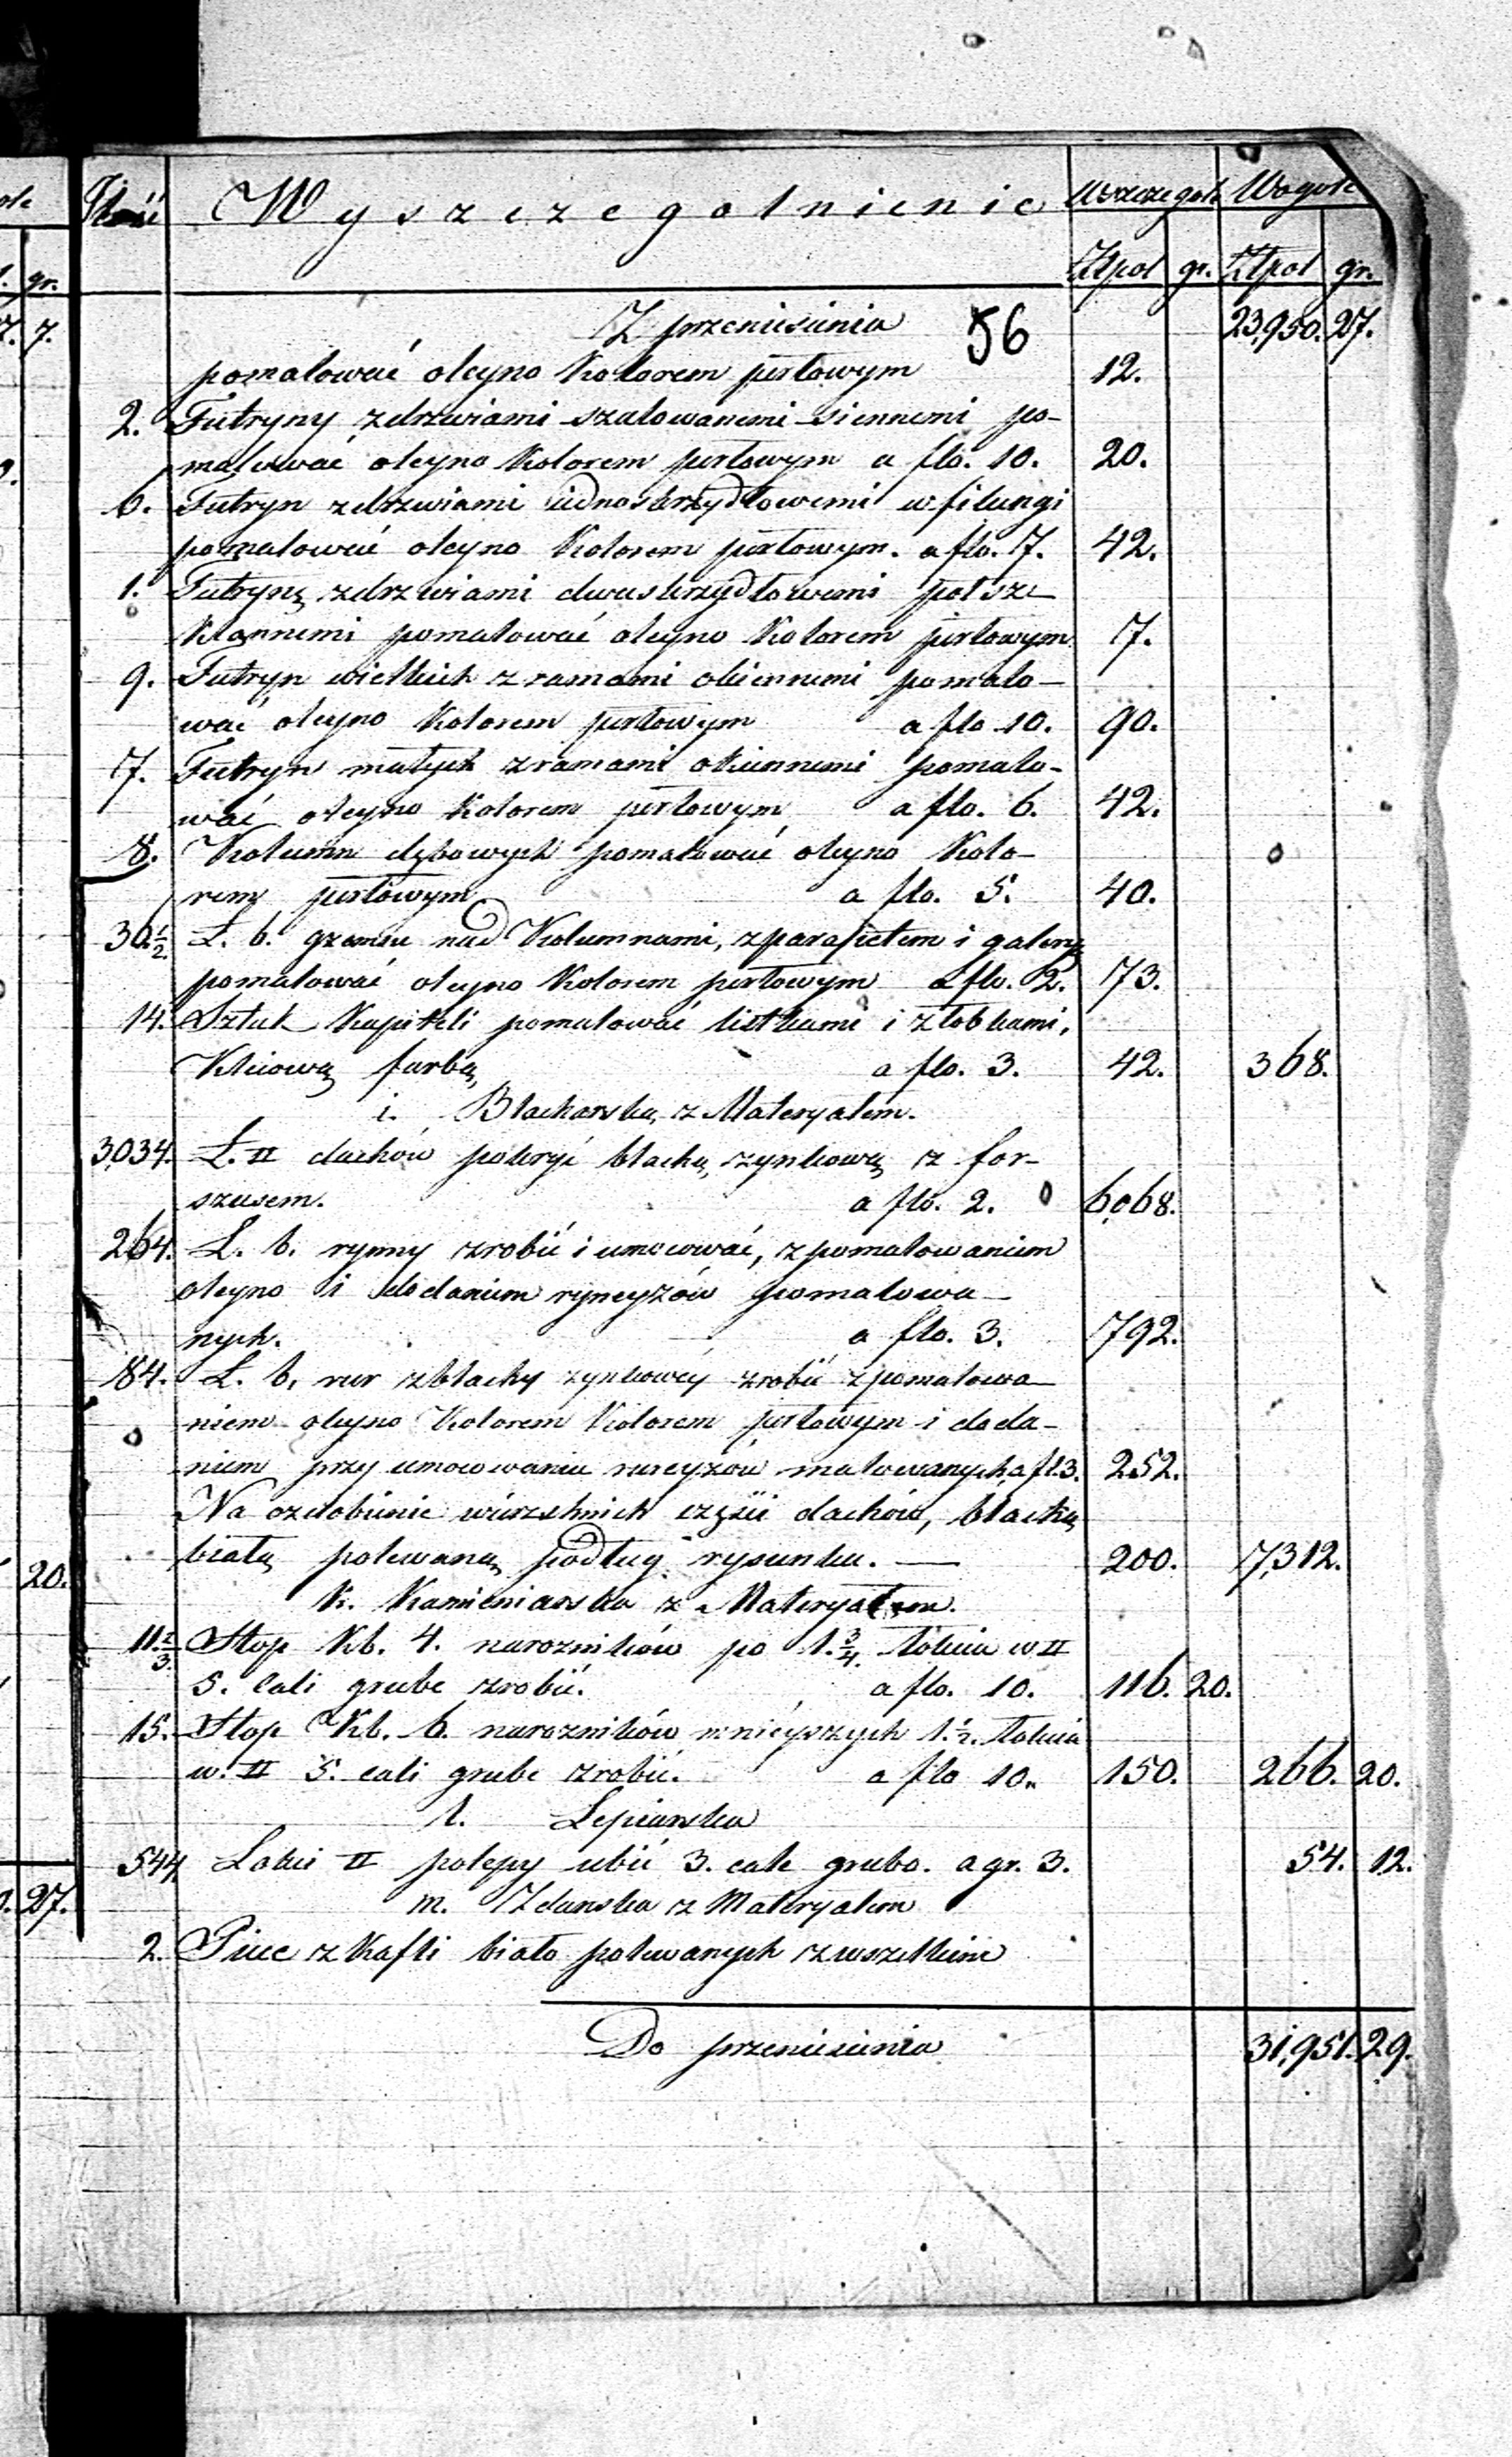 Ilość Wyszczególnienie Wszczegole Wogole
Złpol gr. Złpol gr.
Z przeniesienia 56 23,950. 27.
pomalować oleyno kolorem perłowym 12.
2. Futryny zdrzwiami szalowanemi siennemi po-
malować oleyno kolorem perłowym a flo. 10. 20.
6. Futryn zdrzwiami iednoskrzydłowemi w filungi
pomalować oleyno kolorem perłowym. a flo. 7. 42.
1. Futrynę zdrzwiami dwuskrzydłowemi pół szc
klannemi pomalować oleyno kolorem perłowym 7.
9. Futryn wielkich z ramami okiennemi pomalo-
wać oleyno kolorem perłowym a flo 10. 90.
7. Futryn małych z ramami okiennemi pomalo-
wać oleyno kolorem perłowym a flo. 6. 42.
8. Kolumn dębowych pomalować oleyno kolo-
rem perłowym a flo. 5. 40.
36½. Ł. b. gzemsu nad Kolumnami, z parapetem i galeryą
pomalować oleyno kolorem perłowym a flo. 2. 73.
14. Sztuk Kapiteli pomalować listkami i złobkami,
Kleiową farbą a flo. 3. 42. 368.
i. Blacharska, z Materyałem.
3,034. Ł. □ dachów pokryć blachą zynkową z for-
szusem. a flo. 2. 6,068.
264. Ł. b. rynny zrobić i umocować, z pomalowaniem
oleyno i dodaniem ryneyzów pomalowa-
nych. a flo. 3. 792.
84. Ł. b. rur z blachy zynkowéy zrobić z pomalowa-
niem oleyno Kolorem Kolorem perłowym i doda-
niem przy umocowaniu rureyzów malowanych, a fl. 3. 252.
Na ozdobienie wierzchnich części dachów, blachą
białą polewaną podług rysunku. 200. 7,312.
k. Kamieniarska z Materyałem.
11.⅔. Stop Kb. 4. narożników po 1.¾. łokcia w □
5. cali grube zrobić. a flo. 10. 116. 20.
15. Stop Kb. 6. narożników mnieyszych 1.½. łokcia
w. □ 5. cali grube zrobić. a flo 10. 150. 266. 20.
l. Lepiarska
544 Łokci □ polepy ubić 3. cale grubo. a gr. 3. 54. 12.
m. Zduńska z Materyałem
2. Piece z kafli biało polewanych z wszelkiem
Do przeniesienia 31,951. 29.